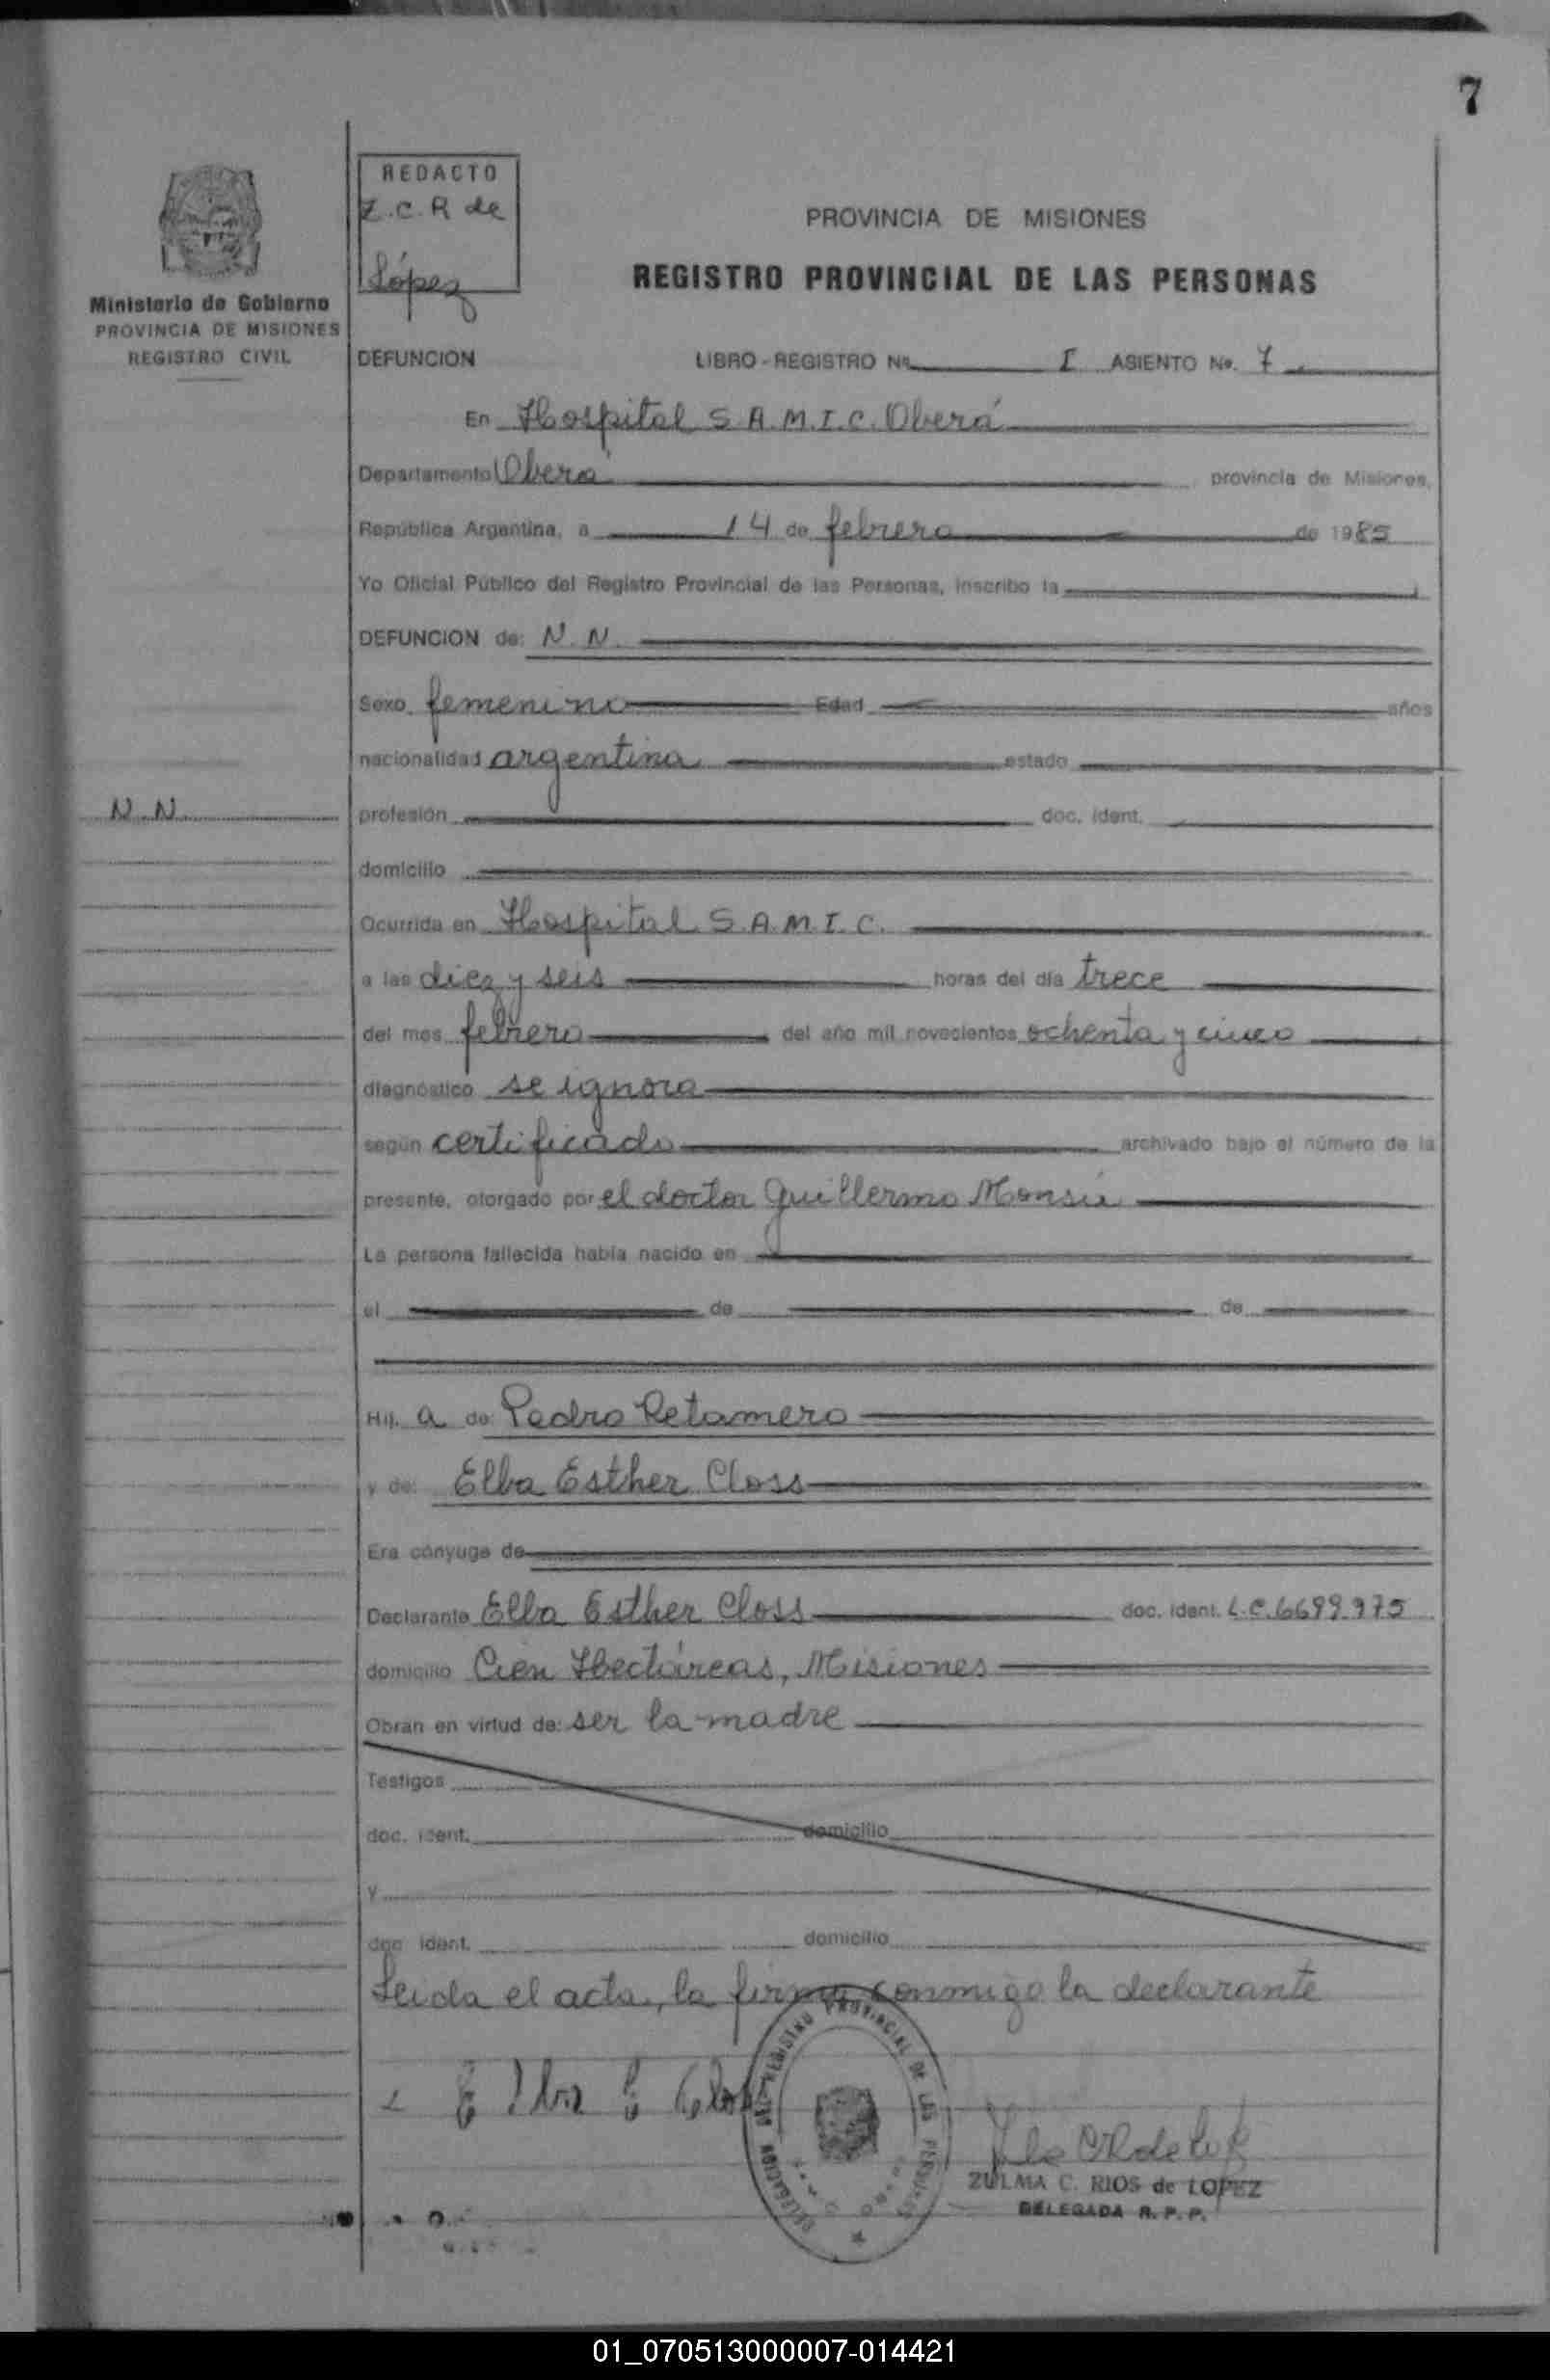 7
REDACTO
Z.C.R de
López
Ministerio de Gobierno
PROVINCIA DE MISIONES
REGISTRO CIVIL
PROVINCIA DE MISIONES
REGISTRO PROVINCIAL DE LAS PERSONAS
DEFUNCION LIBRO-REGISTRO No. I ASIENTO No. 7
En Hospital S.A.M.I.C. Oberá
Departamento Oberá provincia de Misiones,
República Argentina, a 14 de febrero de 1985
Yo Oficial Público del Registro Provincial de las Personas, inscribo la
DEFUNCION de: N.N.
Sexo femenino Edad años
nacionalidad argentina estado
N.N.
profesión doc. ident.
domicilio
Ocurrida en Hospital S.A.M.I.C.
a las diez y seis horas del día trece
del mes febrero del año mil novecientos ochenta y cinco
diagnóstico se ignora
según certificado archivado bajo el número de la
presente, otorgado por el doctor Guillermo
La persona fallecida había nacido en
el de de
Hij. a de: Pedro Retamero
y de: Elba Esther Closs
Era cónyuge de
Declarante Elba Esther Closs doc. ident. L.C. 6699.975
domicilio Cien Hectáreas, Misiones
Obran en virtud de: ser la madre
Testigos
doc. ident. domicilio
y
doc. ident. domicilio
Leida el acta, la firma conmigo la declarante
Elba E Closs
REGISTRO PROVINCIAL DE LAS PERSONAS
DELEGACION
ZULMA C. RIOS de LOPEZ
DELEGADA R.P.P.
01_070513000007-014421